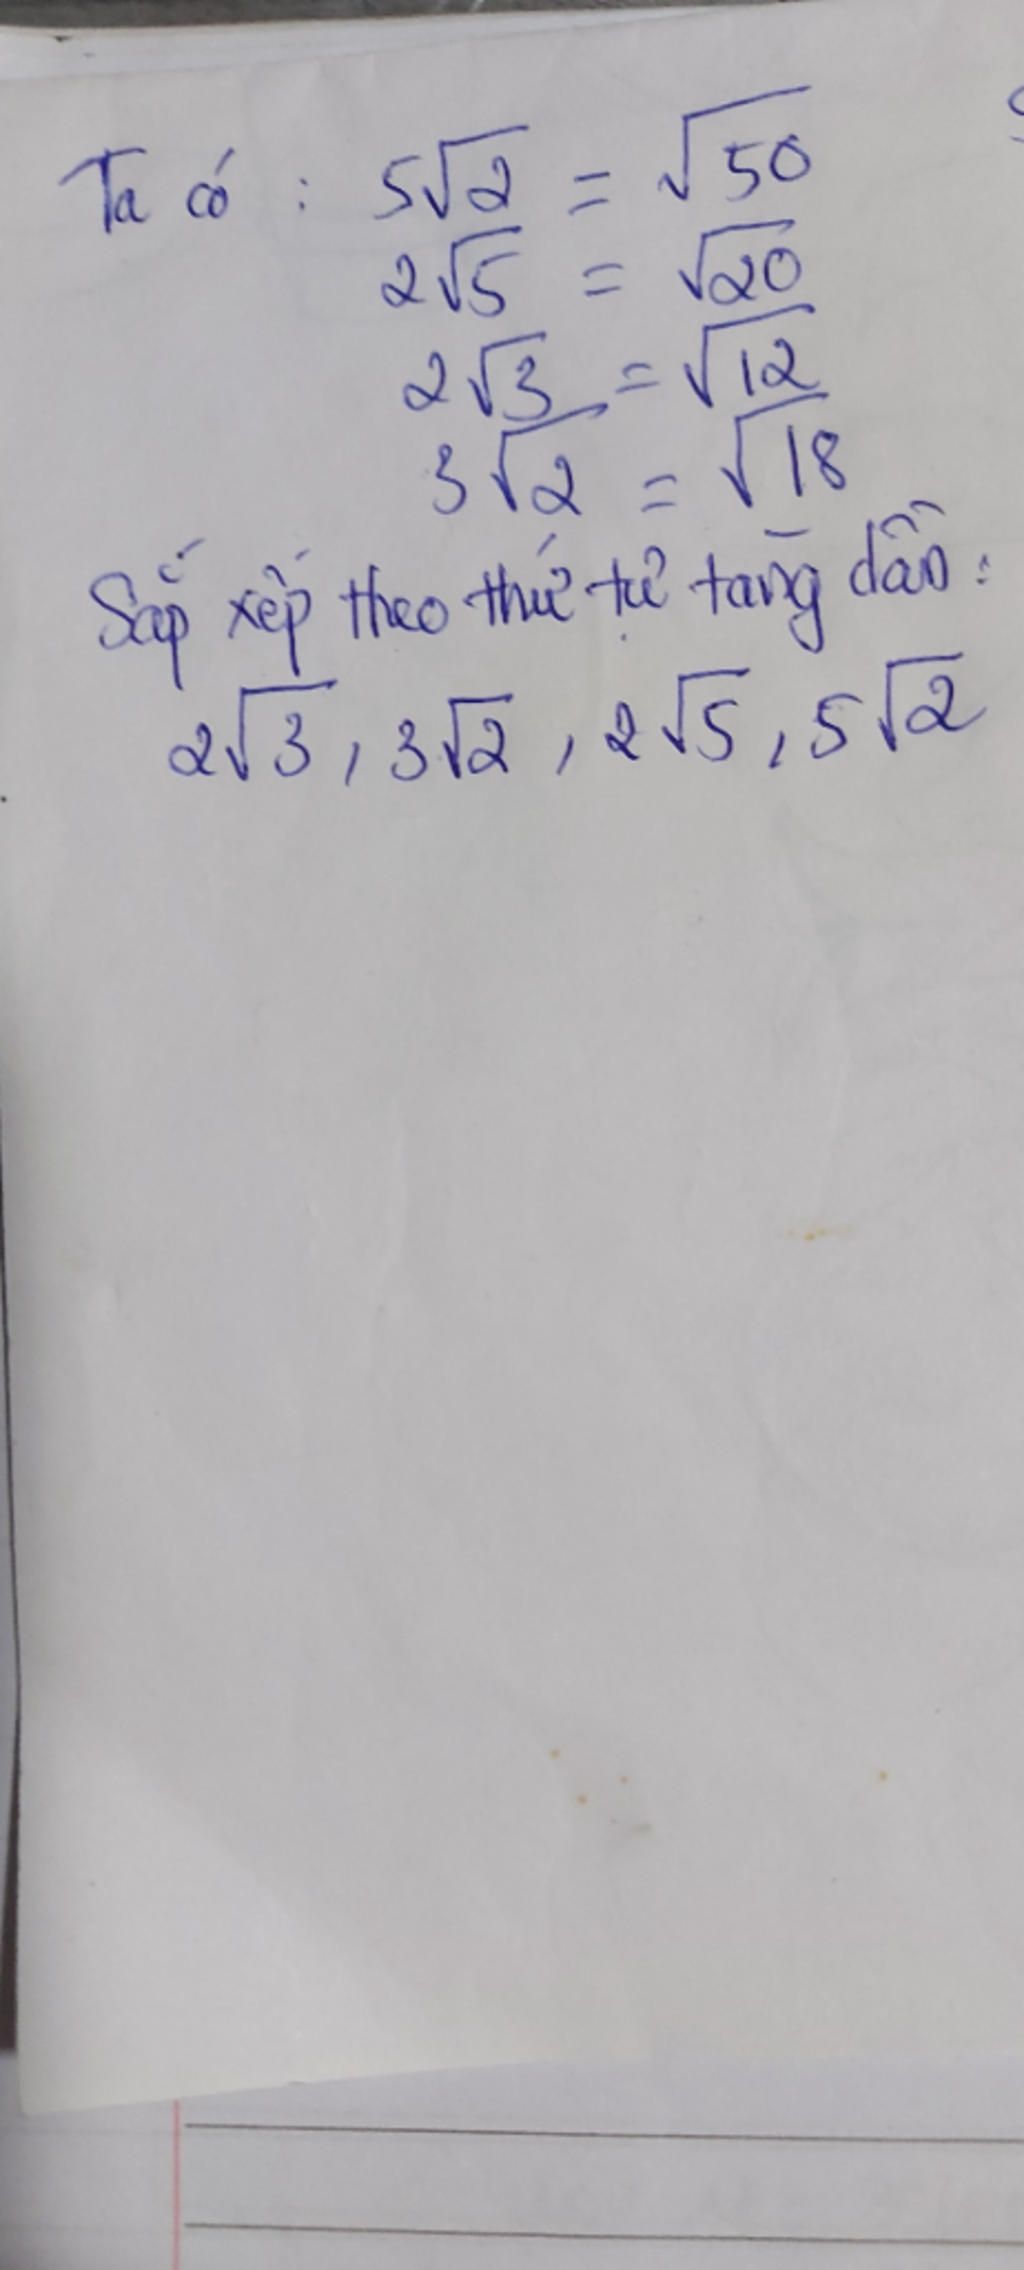 Ta có : 5√2 = √50
2√5 = √20
2√3 = √12
3√2 = √18
Sắp xếp theo thứ tự tăng dần :
2√3 , 3√2 , 2√5 , 5√2